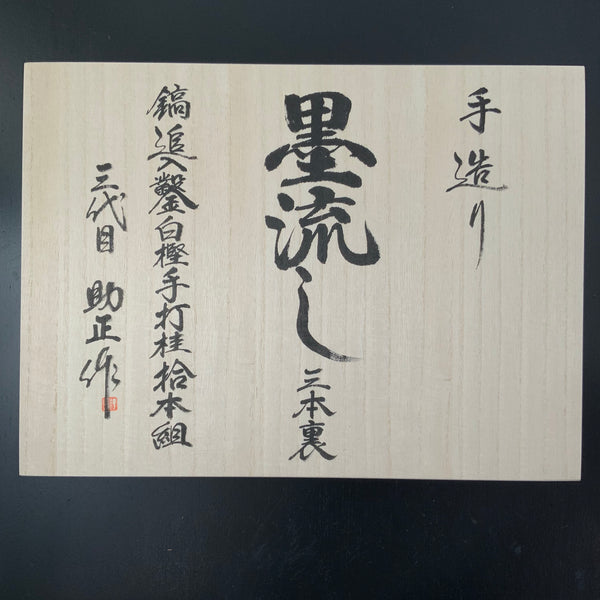 手造り
墨流し 三本裏
鎬追入鑿白樫手打桂拾本組
三代目 助正作